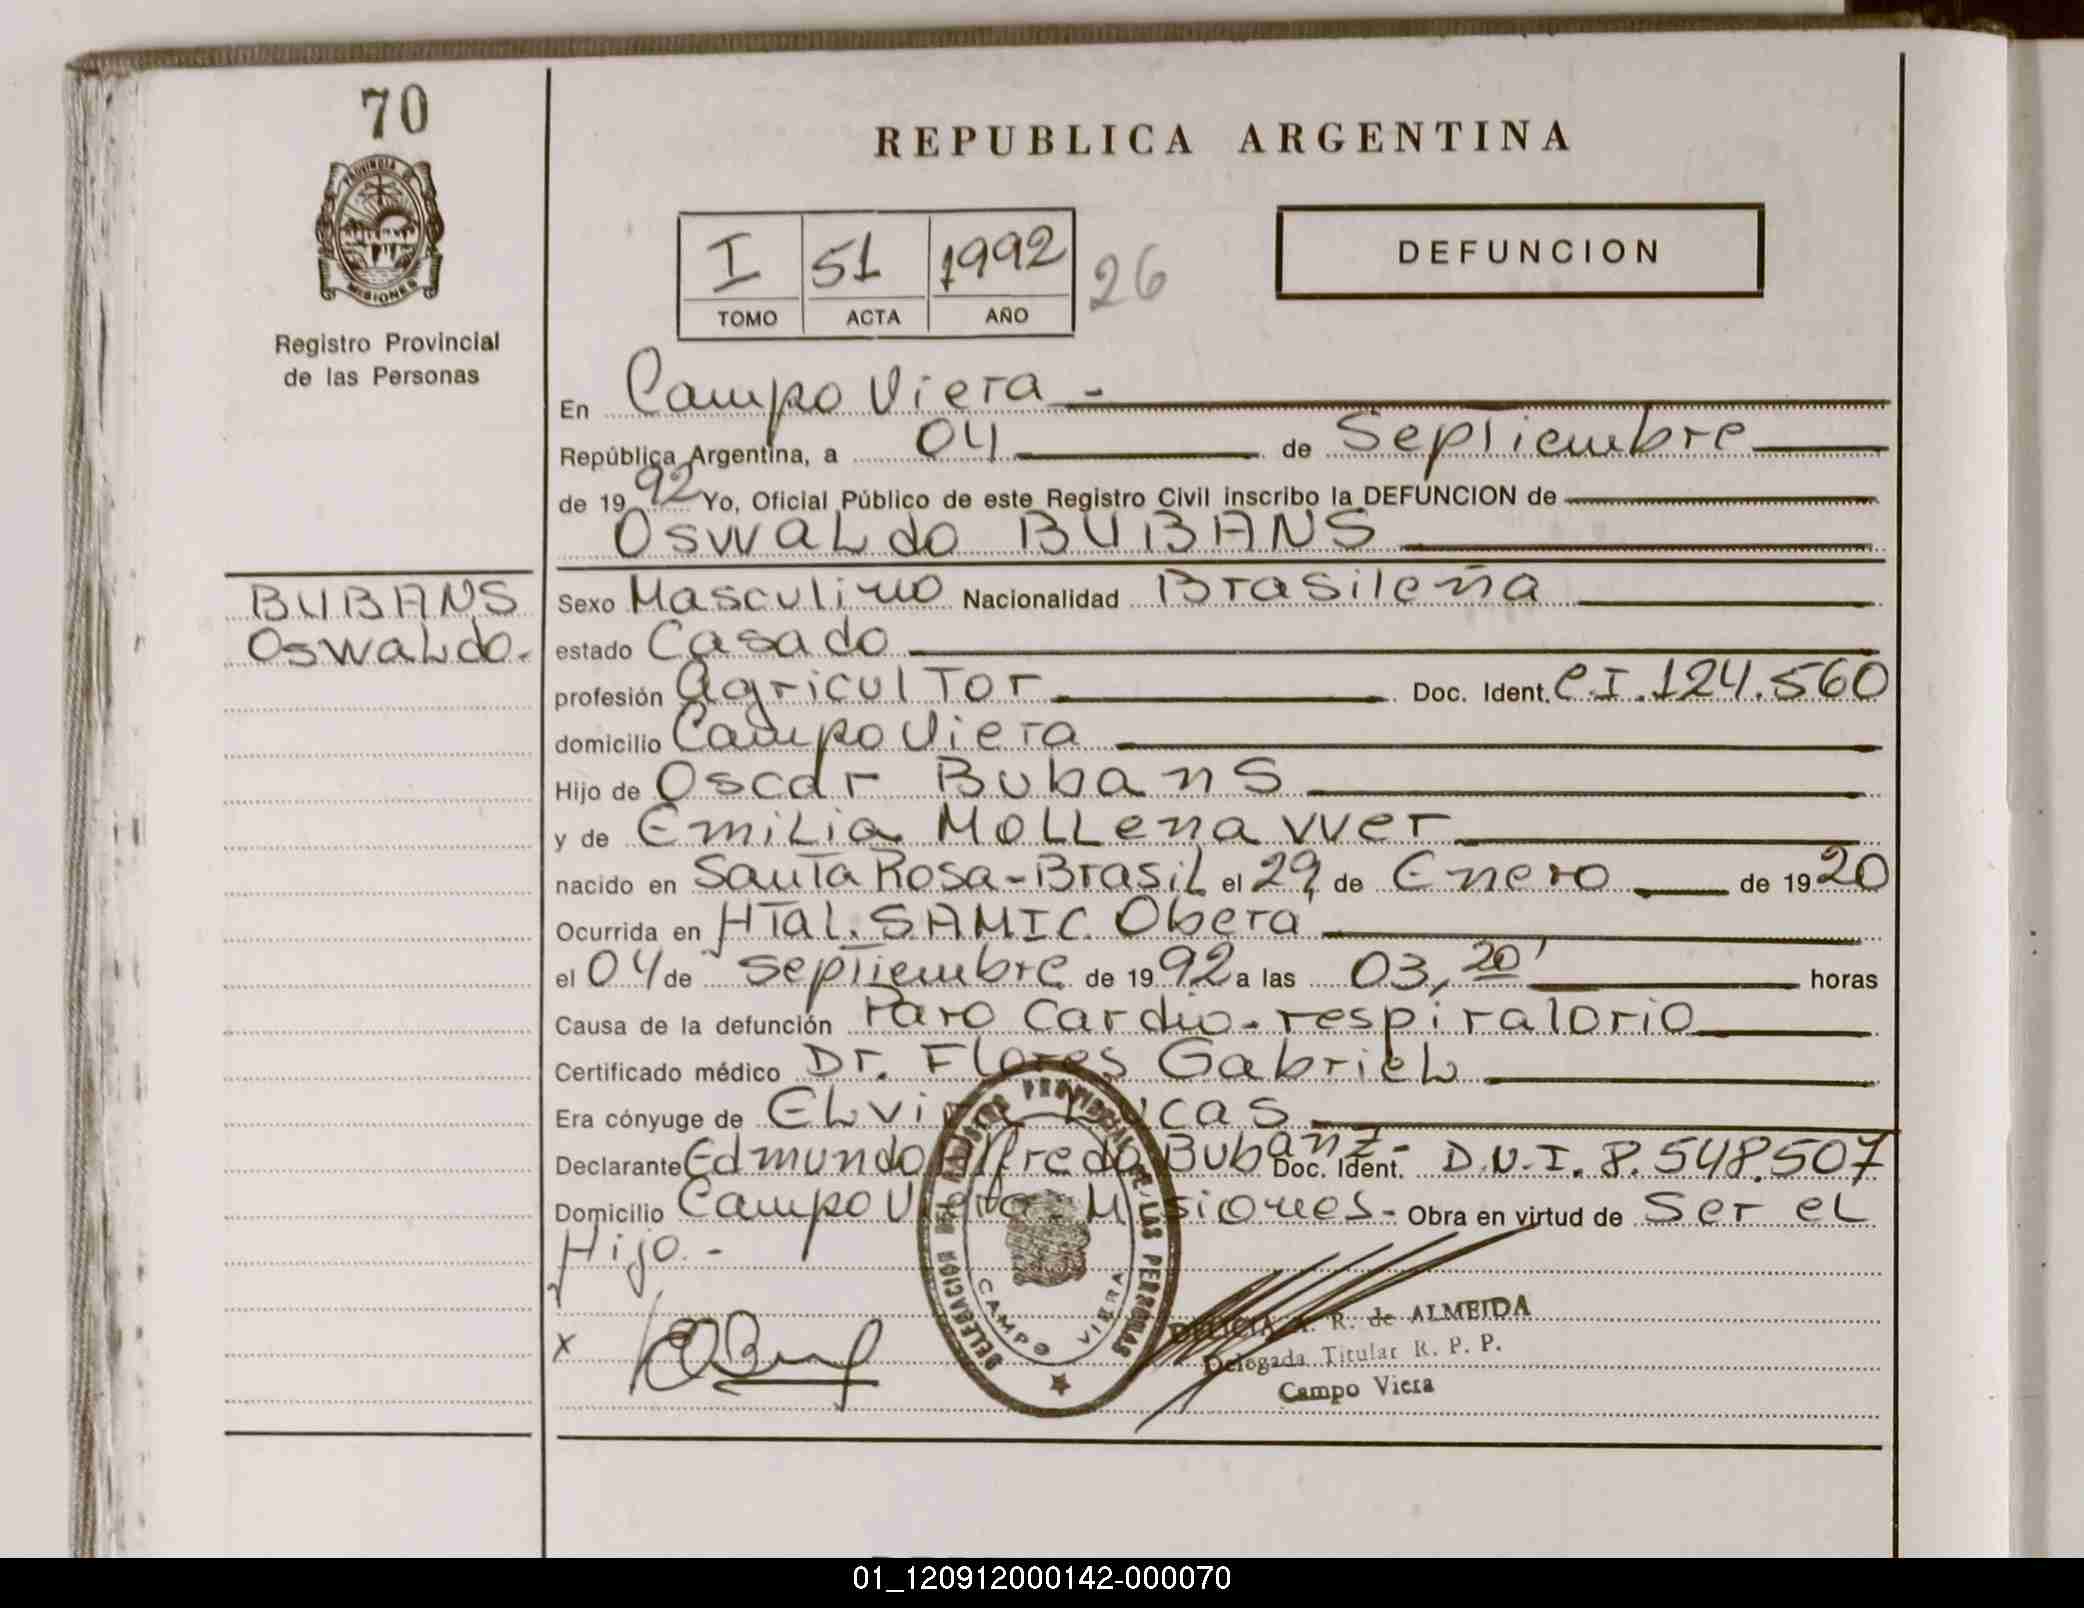 70
PROVINCIA DE
MISIONES
Registro Provincial
de las Personas
REPUBLICA ARGENTINA
I 51 1992 26
TOMO ACTA AÑO
DEFUNCION
En Campo Viera -
República Argentina, a 04 de Septiembre
de 19 92 Yo, Oficial Público de este Registro Civil inscribo la DEFUNCION de
Oswaldo BUBANS
BUBANS
Oswaldo.
Sexo Masculino Nacionalidad Brasileña
estado Casado
profesión Agricultor Doc. Ident. C.I. 124.560
domicilio Campo Viera
Hijo de Oscar Bubans
y de Emilia Mollenawer
nacido en Santa Rosa - Brasil el 29 de Enero de 19 20
Ocurrida en Htal. SAMIC. Obera
el 04 de septiembre de 19 92 a las 03, 20' horas
Causa de la defunción Paro Cardio-respiratorio
Certificado médico Dr. Flores Gabriel
Era cónyuge de Elvira Lucas
Declarante Edmundo Alfredo Bubanz - Doc. Ident. D.N.I. 8.548.507
Domicilio Campo Viera - Misiones - Obra en virtud de ser el
Hijo. -
DELEGACION DEL REGISTRO PROVINCIAL DE LAS PERSONAS
CAMPO VIERA
x
R. de ALMEIDA
Delegada Titular R. P. P.
Campo Viera
01_120912000142-000070